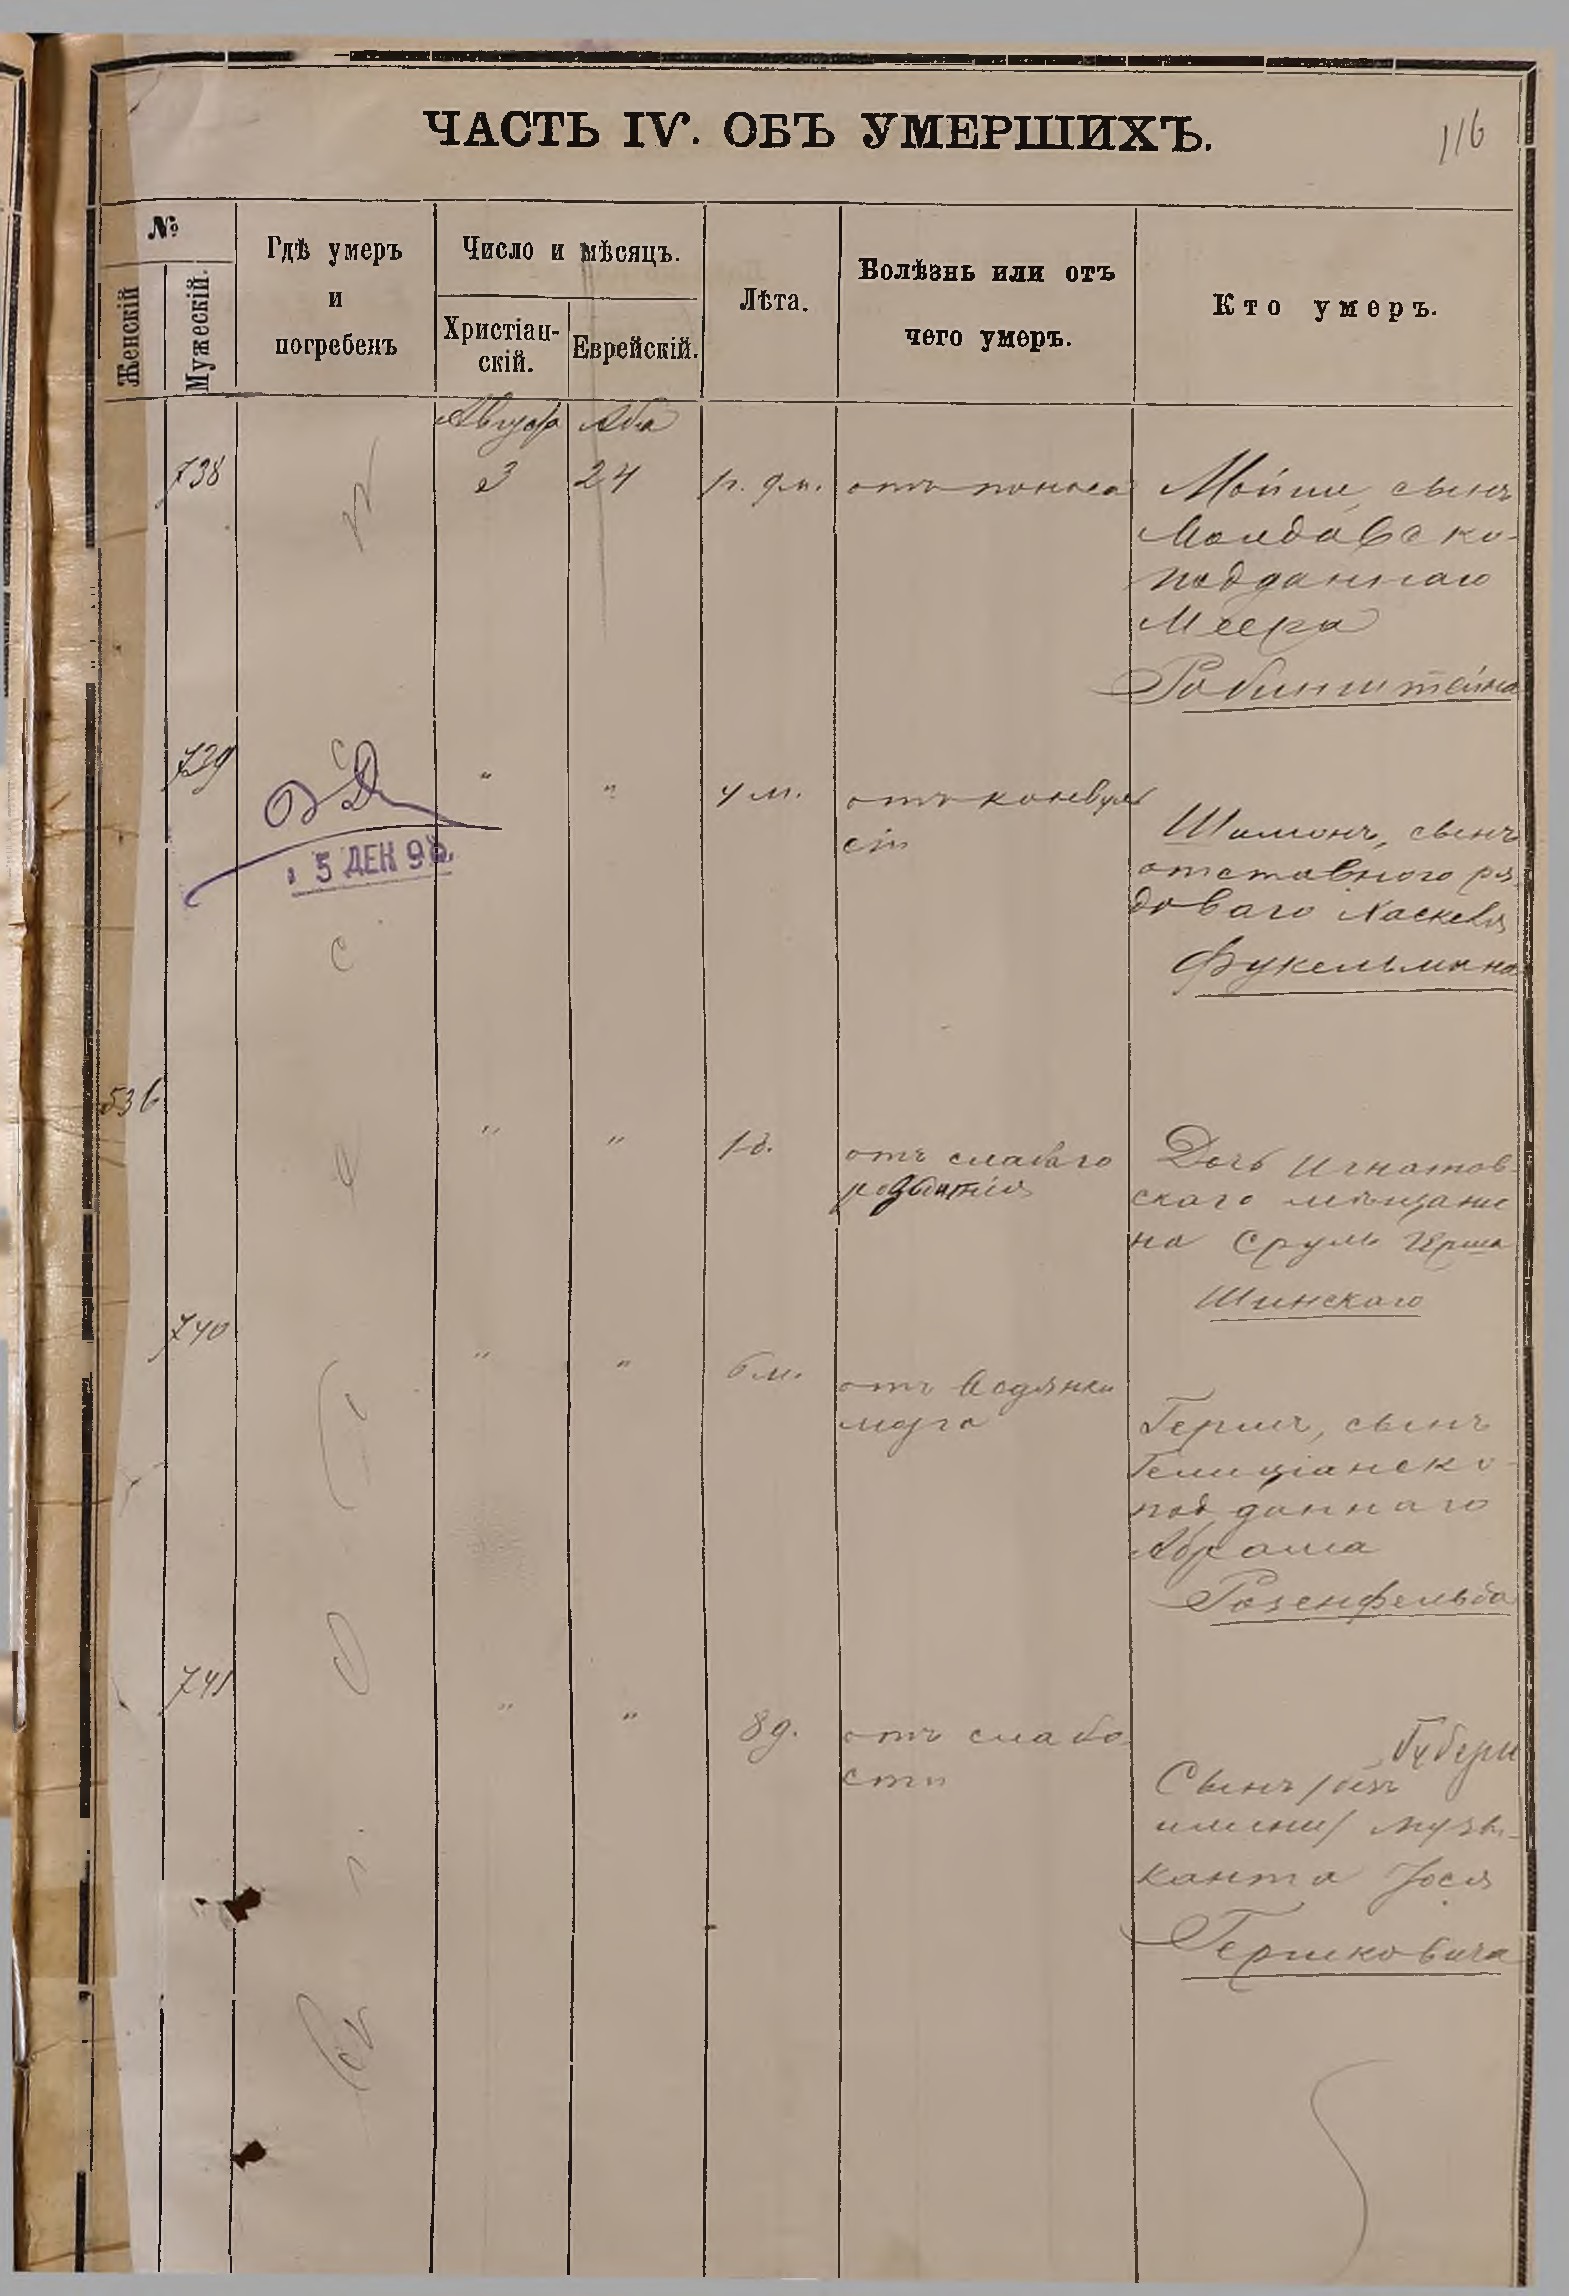 ЧАСТЬ IV. ОБЪ УМЕРШИХЪ.
116
№
Женскій
Мужескій.
Гдѣ умеръ
и
погребенъ
Число и мѣсяцъ.
Христіан-
скій.
Еврейскій.
Лѣта.
Болѣзнь или отъ
чего умеръ.
Кто умеръ.
Август Аба
738 3 24 1г. 9м. отъ поноса Мойше, сынъ
Молдавско-
подданнаго
Меера
Рабинштейна
739 " " 4 м. отъ конвуль
сіи
5 ДЕК 9
Шимонъ, сынъ
отставного ря
доваго Хаскеля
Фукельмана
536 " " 1 д. отъ слабаго
розвитія
Дочь Игнатов-
скаго мѣщани
на Сруль Герша
Шинскаго
740 " " 6 м. отъ Водянки
мозга
Гершъ, сынъ
Галиціанско-
подданнаго
Абрама
Розенфельда
741 " " 8 д. отъ слабо
сти
Губерн
Сынъ /безъ
имени/ музы-
канта Іося
Гершковича